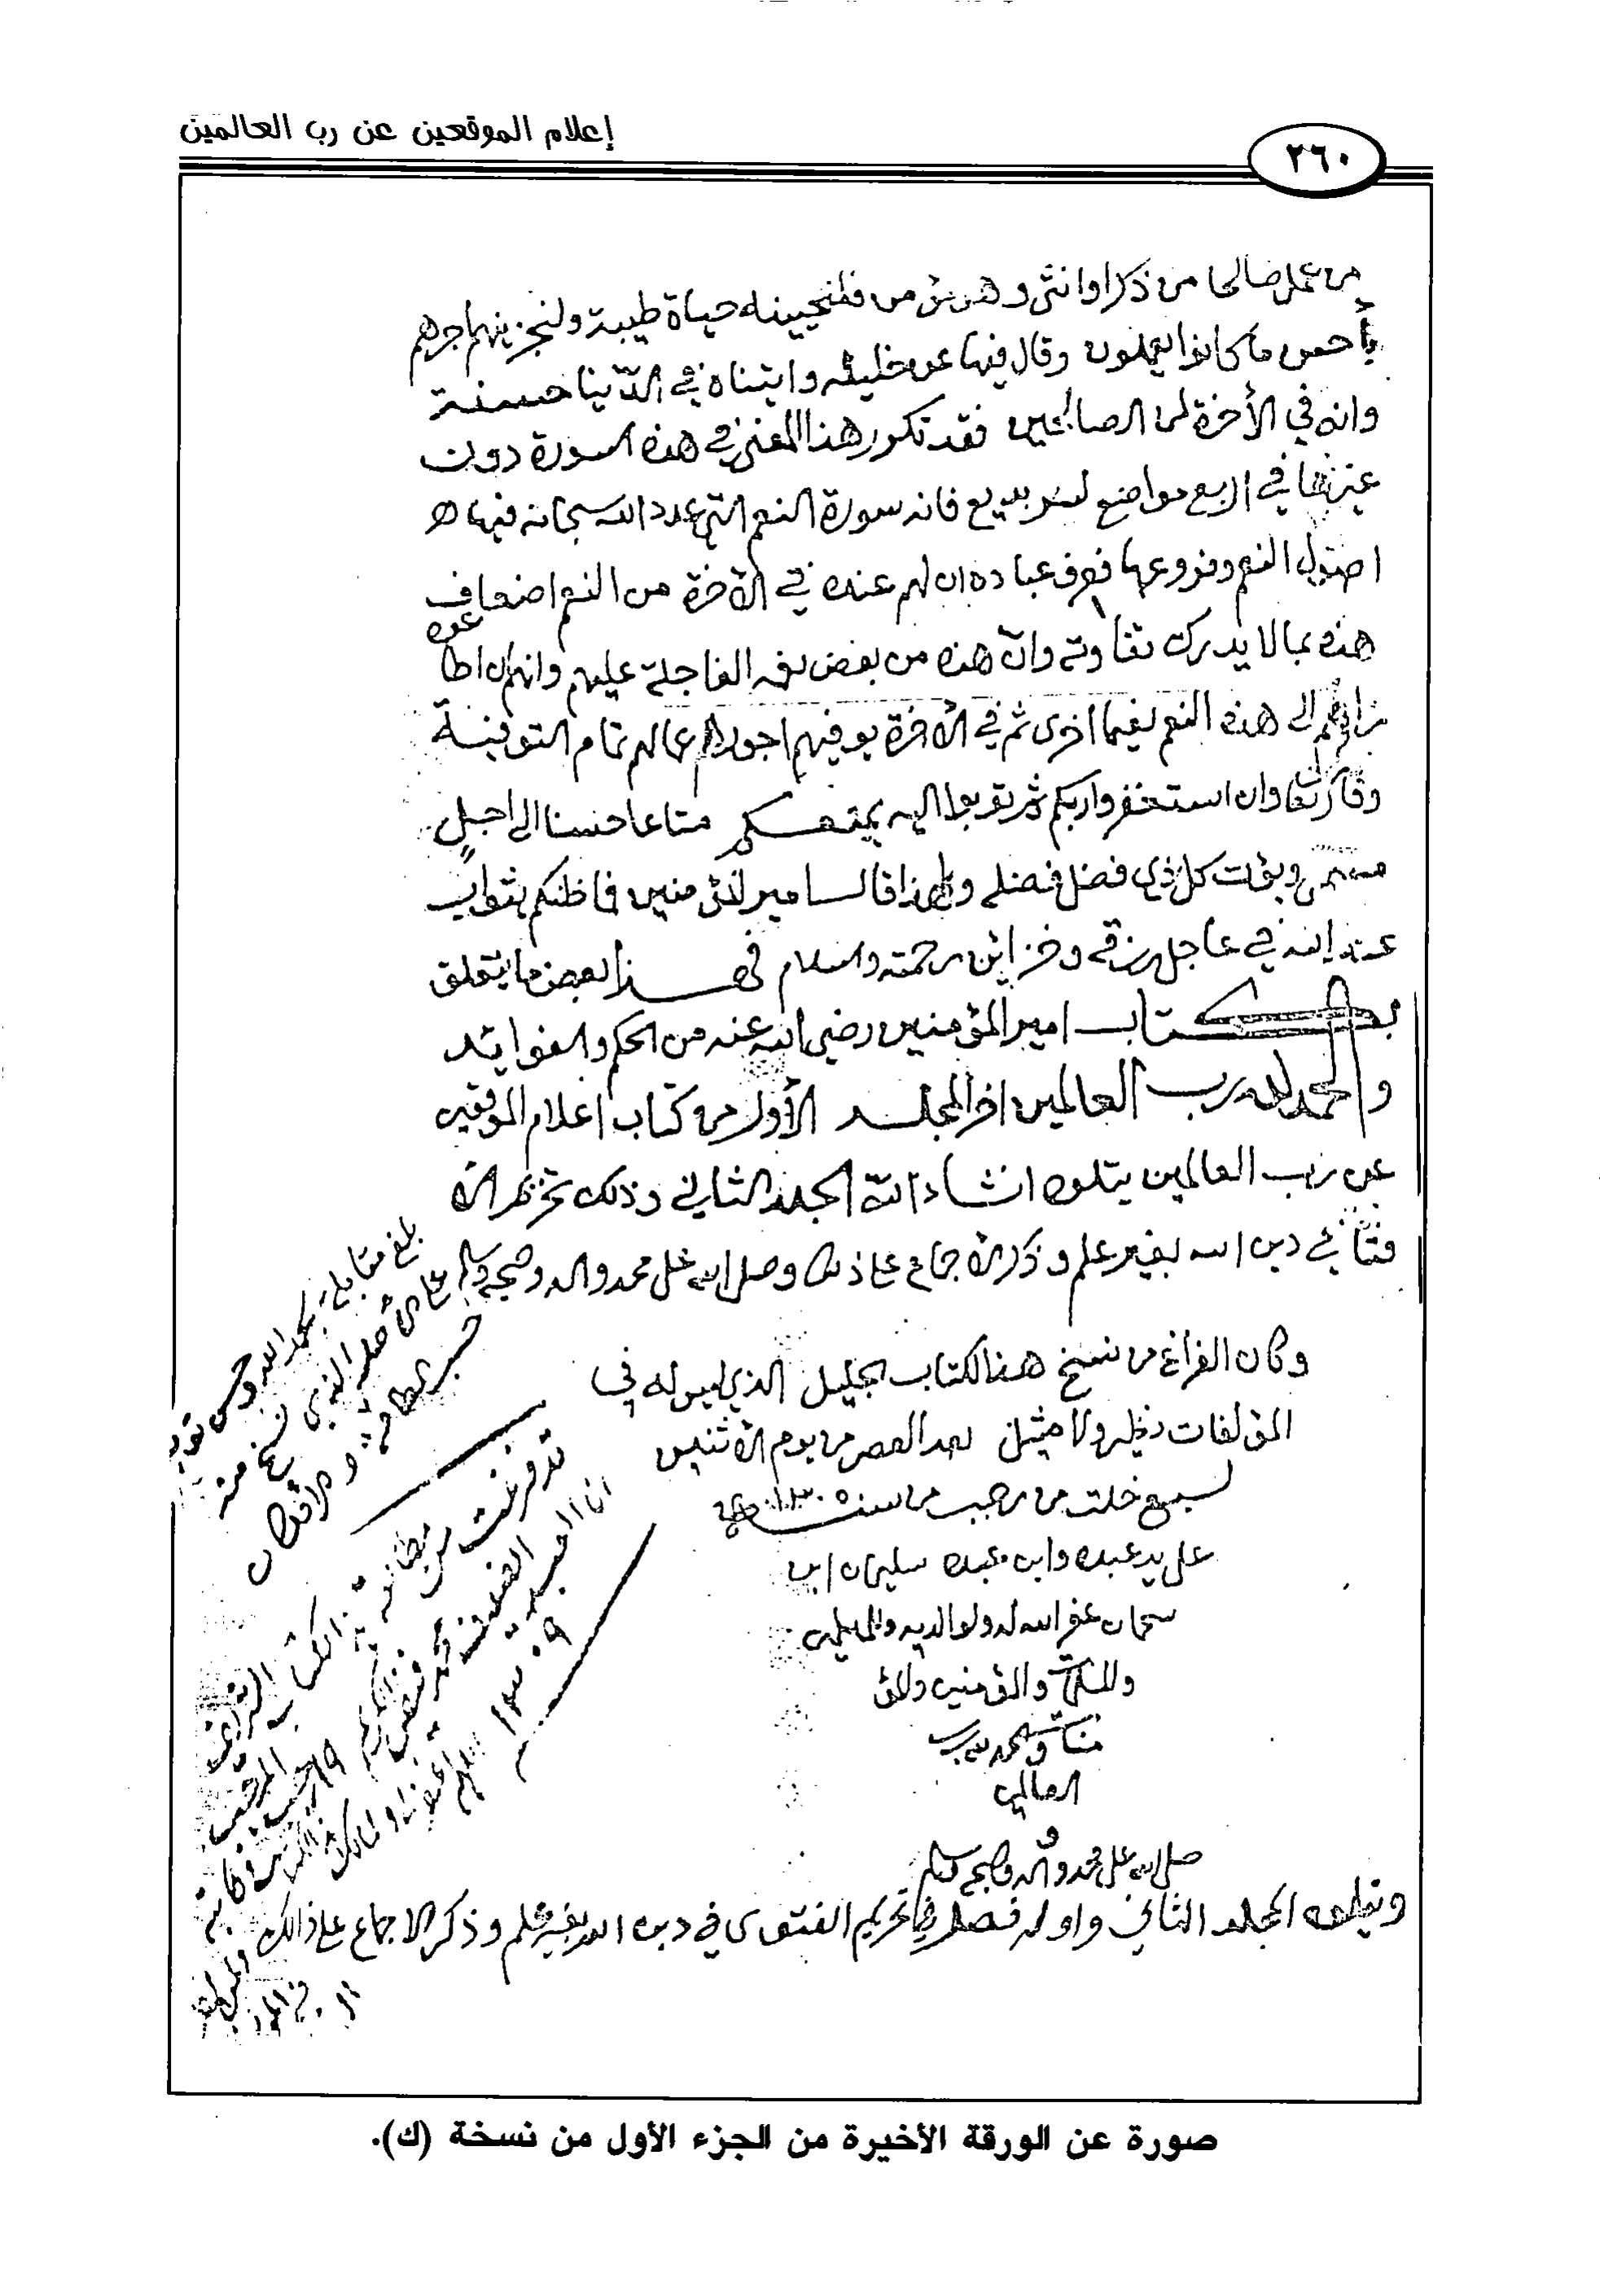 إعلام الموقعين عن رب العالمين
٢٦٠
من عمل صالحا من ذكر او انثى وهو مؤمن فلنحيينه حياة طيبة ولنجزينهم اجرهم
بأحسن ما كانوا يعملون وقال فيها عن خليله واتيناه في الدنيا حسنة
وانه في الأخرة لمن الصالحين فقد تكرر هذا المعنى في هذه السورة دون
غيرها في اربع مواضع لسر بديع فانه سورة النعم التي عدد الله سبحانه فيها
اصول النعم وفروعها فعرف عباده ان لهم عنده في الآخرة من النعم اضعاف
هذه بما لا يدرك تفاوته وان هذه من بعض نعمه العاجلة عليهم وانهم ان اطاعوه
زادهم الى هذه النعم نعيما اخرى ثم في الآخرة يوفيهم اجور اعمالهم تمام التوفية
وقال تعالى وان استغفروا ربكم ثم توبوا اليه يمتعكم متاعا حسنا الى اجل
مسمى ويؤت كل ذي فضل فضله ولهذا قال امير المؤمنين فما ظنكم بثواب
عند الله في عاجل رزقه وخزائن رحمته والسلام فهذا بعض ما يتعلق
بكتاب امير المؤمنين رضي الله عنه من الحكم والفوائد
والحمد لله رب العالمين اخر المجلد الأول من كتاب اعلام الموقعين
عن رب العالمين يتلوه انشاء الله المجلد الثاني وذلك تحريم الا
فتا في دين الله بغير علم وذكر الاجماع على ذلك وصلى الله على محمد واله وصحبه وسلم
وكان الفراغ من نسخ هذا الكتاب الجليل الذي ليس له في
المؤلفات نظير ولا مثيل بعد العصر من يوم الاثنين
لسبع خلت من رجب من سنة ١٣٠٥
على يد عبده وابن عبده سليمان ابن
سحمان غفر الله له ولوالديه
والمؤمنين والمؤ
منات والحمد لله رب
العالمين
و
صلى الله على محمد واله وصحبه وسلم
ويليه المجلد الثاني واوله فصل في تحريم الفتوى في دين الله بغير علم وذكر الاجماع على ذالك
بلغ مقابلة بحمد الله وحسن
قد فرغت من مطالعة
انا العبد
١٣٠٩
صورة عن الورقة الأخيرة من الجزء الأول من نسخة (ك).